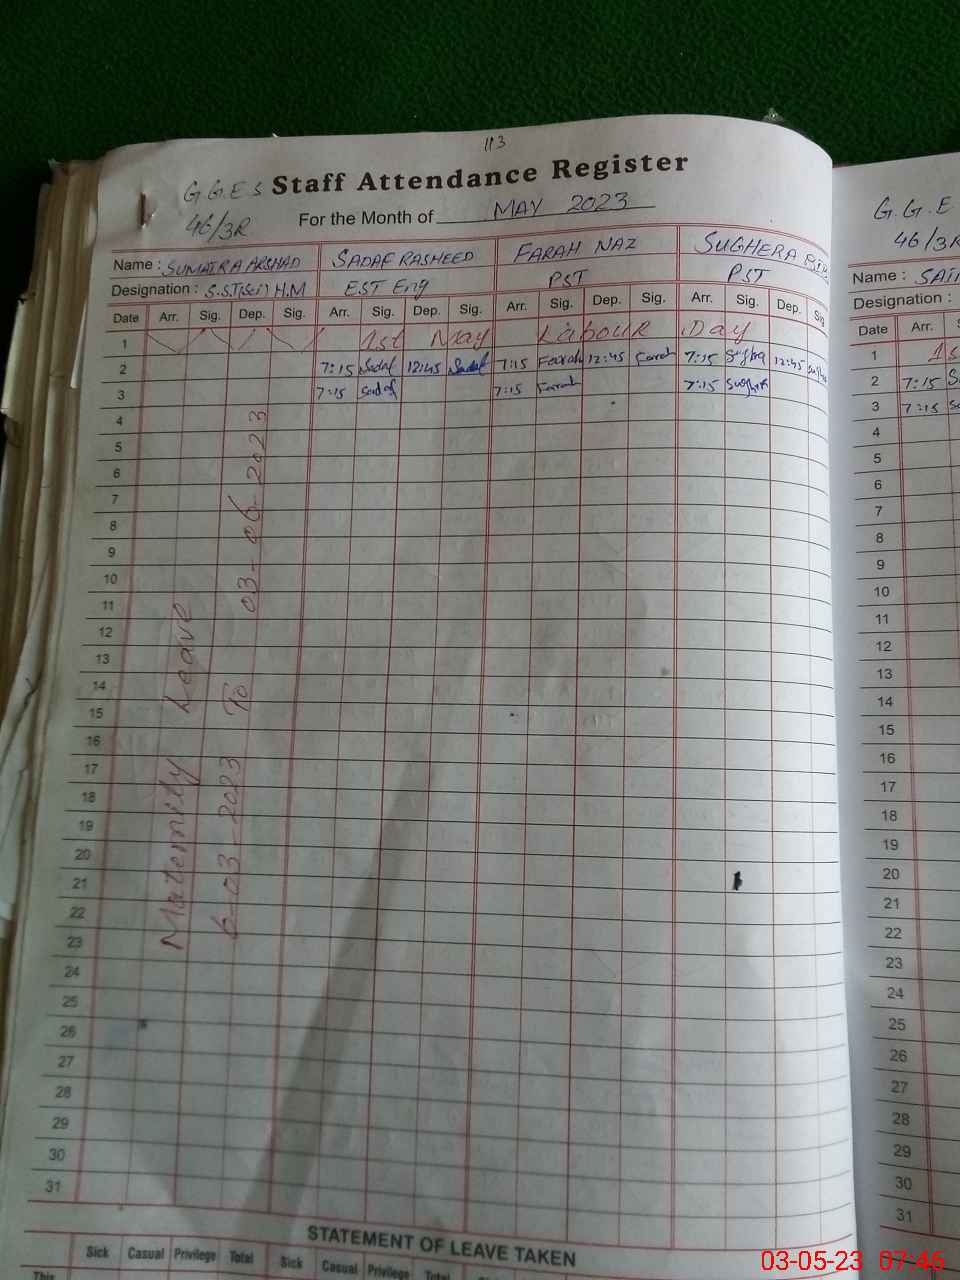 113
G.G.E.S Staff Attendance Register
46/3R For the Month of MAY 2023
Name : SUMAIRA ARSHAD SADAF RASHEED FARAH NAZ SUGHERA BIBI
Designation : S.S.T(Sci) H.M EST Eng PST PST
Date Arr. Sig. Dep. Sig. Arr. Sig. Dep. Sig. Arr. Sig. Dep. Sig. Arr. Sig. Dep. Sig
1 1st May Labour Day
2 7:15 Sadaf 12:45 Sadaf 7:15 Farah 12:45 Farah 7:15 Sughra 12:45
3 7:15 Sadaf 7:15 Farah 7:15 Sughra
4
5
6
7
8
9
10
11
12
13
14
15
16
17
18
19
20
21
22
23
24
25
26
27
28
29
30
31
Maternity Leave
6-03-2023 To 03-06-2023
STATEMENT OF LEAVE TAKEN
Sick Casual Privilege Total Sick Casual Privilege Total
This
G.G.E
46/3R
Name : SAI
Designation :
Date Arr.
1 1s
2 7:15
3 7:15
4
5
6
7
8
9
10
11
12
13
14
15
16
17
18
19
20
21
22
23
24
25
26
27
28
29
30
31
03-05-23 07:46